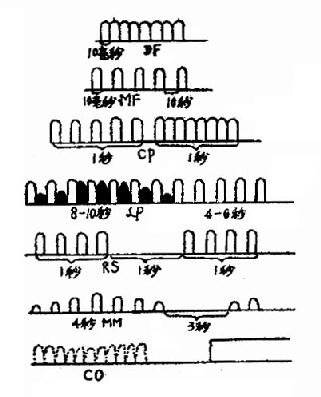 10毫秒 DF
10毫秒 MF 10秒
1秒 CP 1秒
8-10秒 LP 4-6秒
1秒 RS 1秒 1秒
4秒 MM 3秒
CO